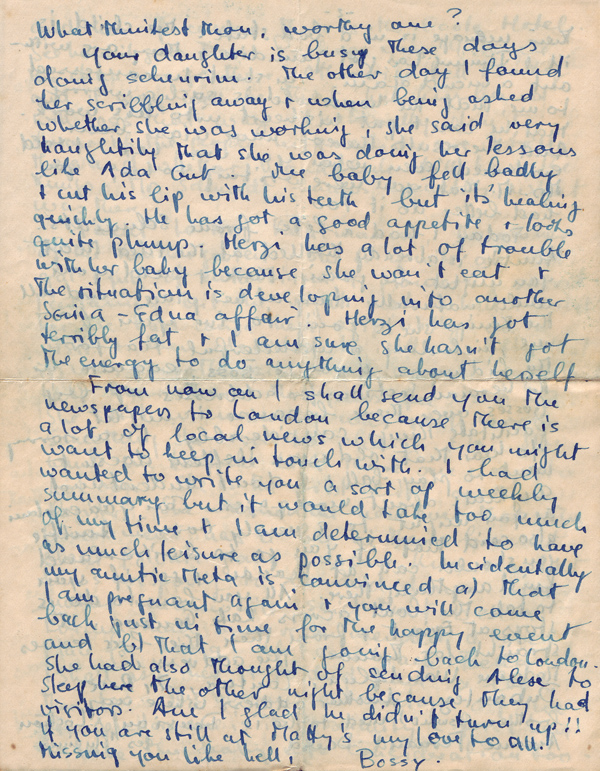 What thinkest thou, worthy one?
Your daughter is busy these days
doing scheurim. The other day I found
her scribbling away & when being asked
whether she was working, she said very
haughtily that she was doing her lessons
like Ada Gut. The baby fell badly
& cut his lip with his teeth but it's healing
quickly. He has got a good appetite & looks
quite plump. Herzi has a lot of trouble
with her baby because she won't eat &
the situation is developing into another
Sonia - Edna affair. Herzi has got
terribly fat & I am sure she hasn't got
the energy to do anything about herself.
From now on I shall send you the
newspapers to London because there is
a lot of local news which you might
want to keep in touch with. I had
wanted to write you a sort of weekly
summary but it would take too much
of my time & I am determined to have
as much leisure as possible. Incidentally
my auntie Meta is convinced a) that
I am pregnant again & you will come
back just in time for the happy event
and b) that I am going back to London.
She had also thought of sending Alex to
sleep here the other night because they had
visitors. Am I glad he didn't turn up!!
If you are still at Matty's my love to all.
Missing you like hell, Bossy.